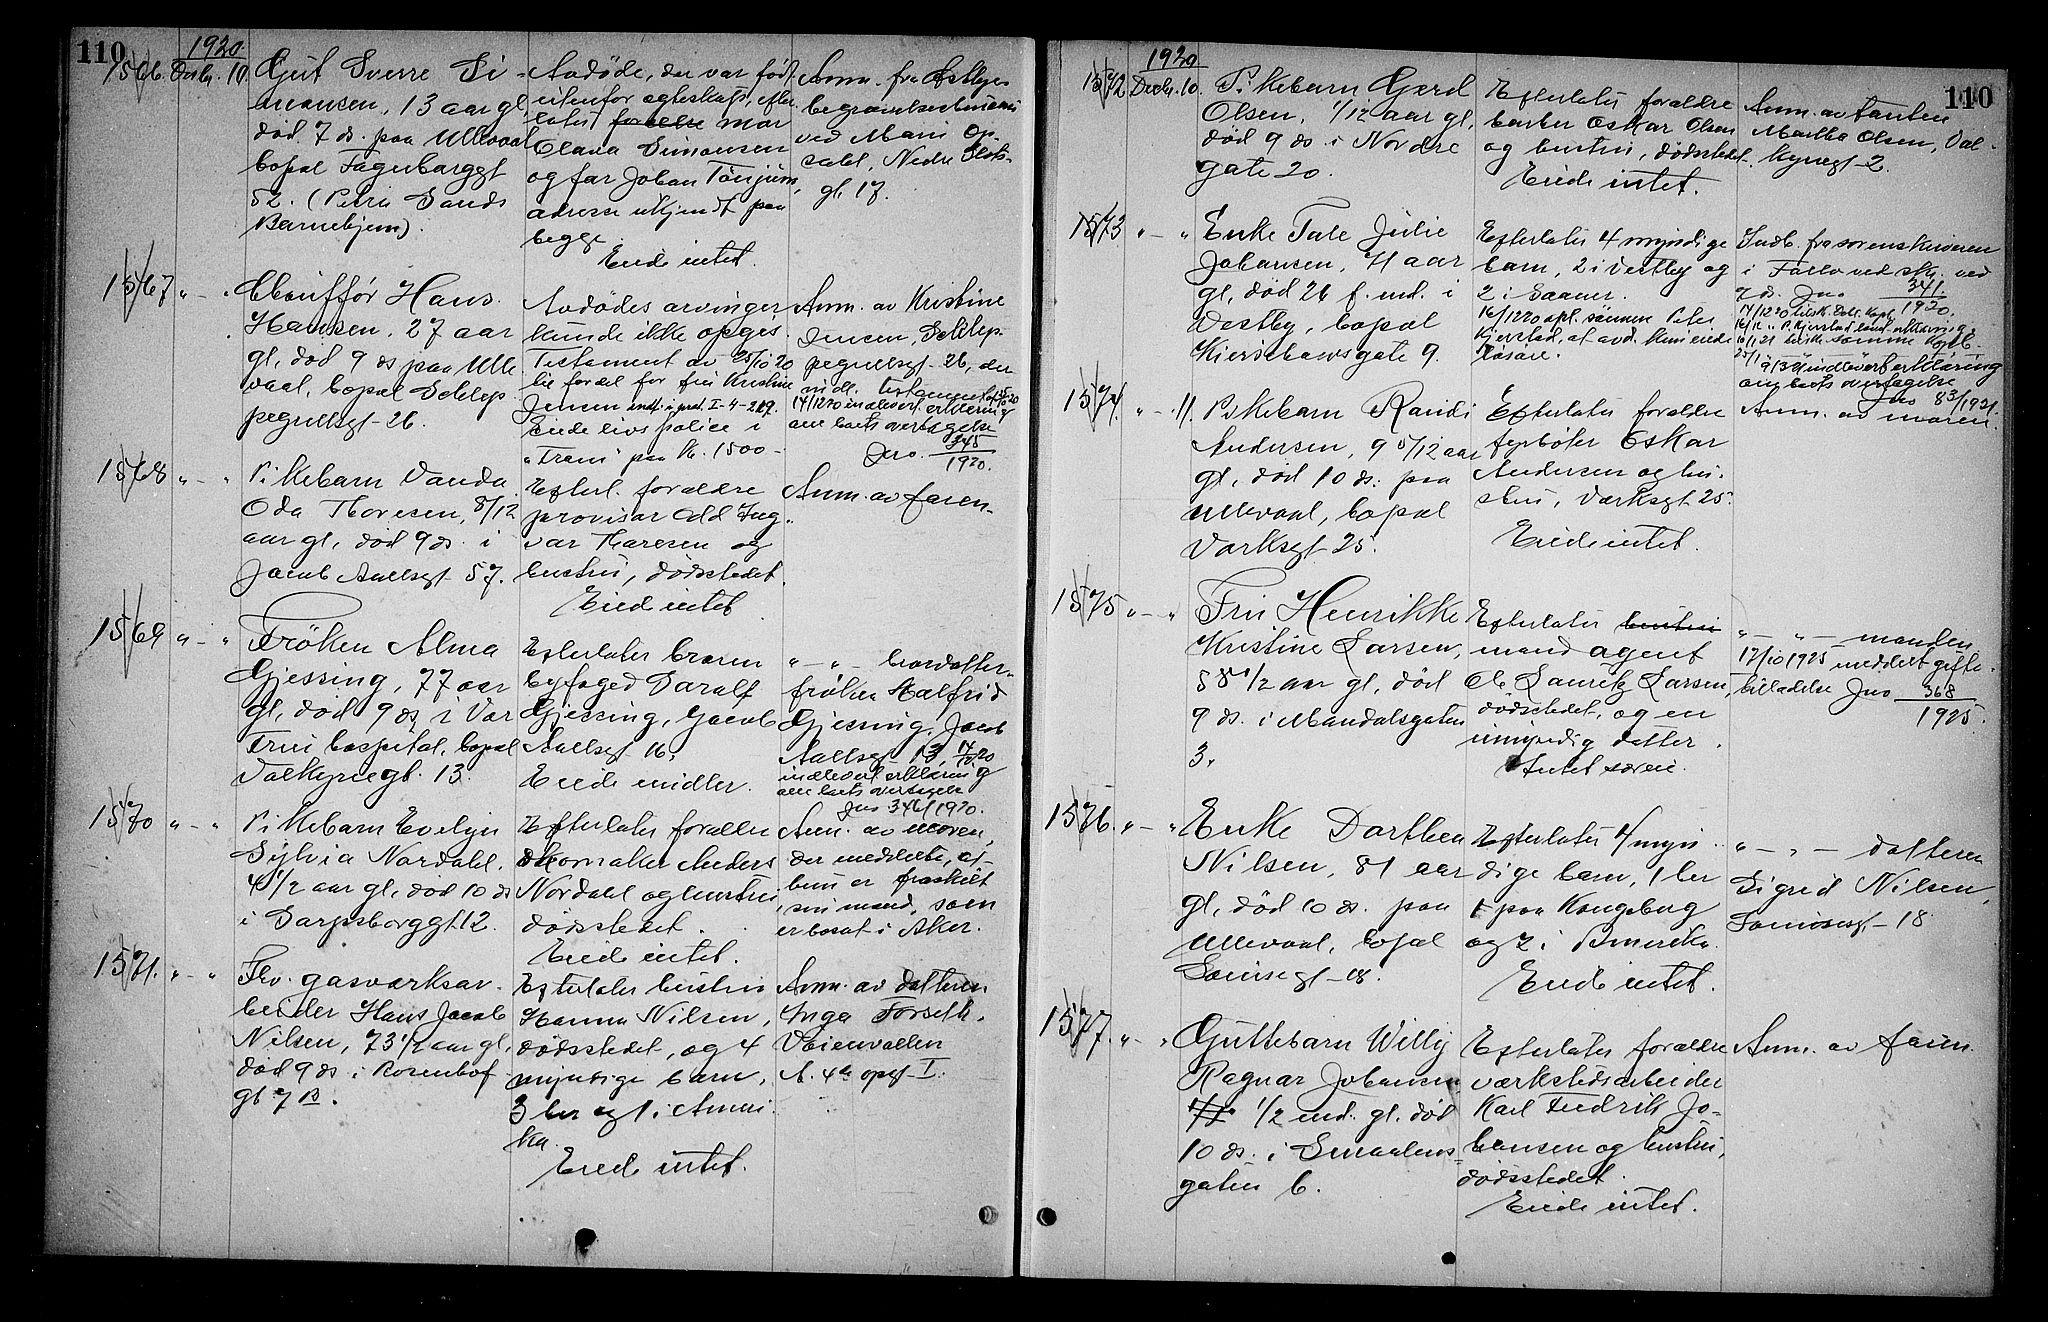 110
1920.
1566. Decbr. 10.
Gut Sverre Si-
monsen, 13 aar gl,
död 7 ds. paa Ullevaal
bopæl Fagerborggt
52. (Petra Sands
Barnehjem).
Avdöde, der var född
utenfor egteskap, efter-
later forældre mor
Olava Simonsen
og far Johan Tönjum,
adresse ukjendt paa
begge.
Eiede intet.
Anm. fra
begravelsesbureau
ved Marie Op-
sahl, Nedre Slots-
gt. 17.
1567 " - "
Chaufför Hans
Hansen, 27 aar
gl, död 9 ds paa Ulle
vaal, bopæl Schlep
pegrellsgt 26.
Avdödes arvinger
kunde ikke opgis.
Testament av 25/10 20
til fordel for frk Kristine
Jensen indf. i prot. I-4-219.
Eiede livspolice i
"Trani" paa Kr. 1500 -
Anm. av Kristine
Jensen, Schlep
pegrellsgt - 26, der
indl. testament av 25/10 20
14/12 20 indlevert erklæring
om boets overtagelse
Jno. 345
1920.
1568 " - "
Pikebarn Vanda
Oda Thoresen, 8/12
aar gl, död 9 ds. i
Jacob Aallsgt 57.
Efterl. forældre
provisor Odd Ing-
var Thoresen og
hustru, dödsstedet.
Eied intet
Anm. av faren.
1569 " - "
Fröken Alma
Gjessing, 77 aar
gl, död 9 ds i Vor
Frue hospital, bopæl
Valkyriegt. 13.
Efterlater broren
byfoged Daralf
Gjessing, Jacob
Aallsgt 16.
Eiede midler.
" - " - brordatter-
fröken Halfrid
Gjessing, Jacob
Aallsgt 13, 14/12 20
indlevert erklæring
om boets overtagelse
Jno 346/1920.
1570 " - "
Pikebarn Evelyn
Sylvia Nordahl,
4 1/2 aar gl, död 10 ds
i Sarpsborggt 12.
Efterlater forældre
skomaker Anders
Nordahl og hustru
dödsstedet.
Eiede intet.
Anm. av moren,
der meddelte, at
hun er fraskilt
sin mand, som
er bosat i Aker.
1571. " - "
Fhv. gasverksar-
beider Hans Jacob
Nilsen, 73 1/2 aar gl,
död 9 ds i Rosenhof-
gt 7 B.
Efterlater hustru
Hanna Nilsen,
dödsstedet, og 4
myndige barn,
3 her og 1 i Ameri
ka.
Eiede intet.
Anm. av datteren
Inga Forseth,
Veienvollen
A. 4de opg I.
110
1920
1572 Decbr. 10.
Pikebarn Gerd
Olsen, 1/12 aar gl,
död 9 ds i Nordre
gate 20.
Efterlater forældre
barber Oskar Olsen
og hustru, dödsstedet.
Eiede intet.
Anm. av tanten
Martha Olsen, Val-
kyriegt 2.
1573 " - "
Enke Tale Julie
Johansen, 71 aar
gl, död 26 f. md. i
Vestby, bopæl
Kierschowsgate 9.
Efterlater 4 myndige
barn, 2 i Vestby og
2 i Saaner.
16/12 20 opl. sönnen Peter
Kjerstad, at avd. kun eiede
lösöre.
Indb. fra sorenskriveren
i Follo ved skr. ved
9 ds. Jno 341.
1920.
om boets overtagelse
Jno 83/1921.
1574 " - " 11.
Pikebarn Randi
Andersen, 9 5/12 aar
gl, död 10 ds. paa
Ullevaal, bopæl
Verksgt 25.
Efterlater forældre
fyrböter Oskar
Andersen og hu-
stru, Verksgt 25.
Eiede intet.
Anm. av moren.
1575 " - "
Fru Henrikke
Kristine Larsen,
58 1/2 aar gl, död
9 ds. i Mandalsgaten
3.
Efterlater hustru
mand agent
Ole Lauritz Larsen,
dödsstedet, og en
umyndig datter.
Intet særeie.
" - " - manden
17/10 1925 meddelt gifte-
tilladelse Jno 368
1925.
1576. " - "
Enke Dorthea
Nilsen, 81 aar
gl, död 10 ds. paa
Ullevaal, bopæl
Sannesgt - 18.
Efterlater 4 myn-
dige barn, 1 her
1 paa Kongsberg
og 2 i Amerika.
Eiede intet.
" - " - datteren
Sigrid Nilsen,
Sannesgt - 18
1577. " - "
Guttebarn Willy
Ragnar Johansen
1/2 md. gl. död
10 ds. i Smaalens-
gaten 6.
Efterlater forældre
værkstedsarbeider
Karl Fredrik Jo-
hansen og hustru,
dödsstedet.
Eiede intet.
Anm. av faren.